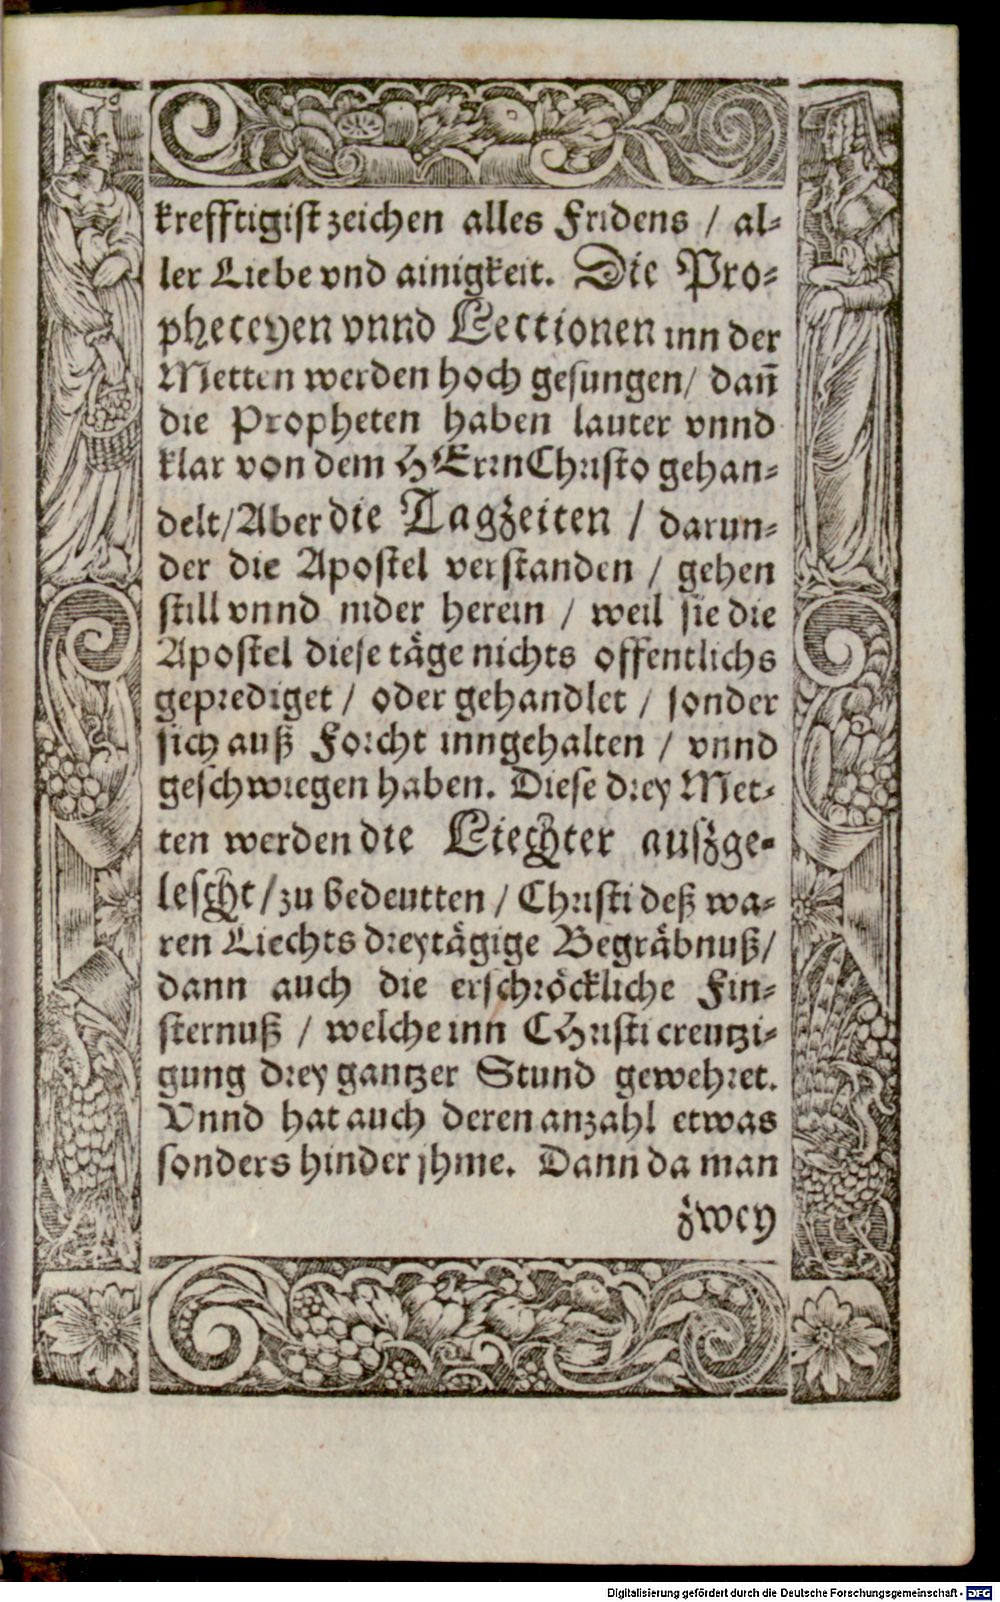 krefftigist zeichen alles Fridens / al-
ler Liebe vnd ainigkeit. Die Pro-
pheteyen vnnd Lectionen inn der
Metten werden hoch gesungen / dañ
die Propheten haben lauter vnnd
klar von dem HErrn Christo gehan-
delt / Aber die Tagzeiten / darun-
der die Apostel verstanden / gehen
still vnnd nider herein / weil sie die
Apostel diese täge nichts offentlichs
geprediget / oder gehandlet / sonder
sich auß Forcht inngehalten / vnnd
geschwiegen haben. Diese drey Met-
ten werden die Liechter auszge-
lescht / zu bedeutten / Christi deß wa-
ren Liechts dreytägige Begräbnuß /
dann auch die erschröckliche Fin-
sternuß / welche inn CHristi creutzi-
gung drey gantzer Stund gewehret.
Vnnd hat auch deren anzahl etwas
sonders hinder jhme. Dann da man
zwey
Digitalisierung gefördert durch die Deutsche Forschungsgemeinschaft - DFG